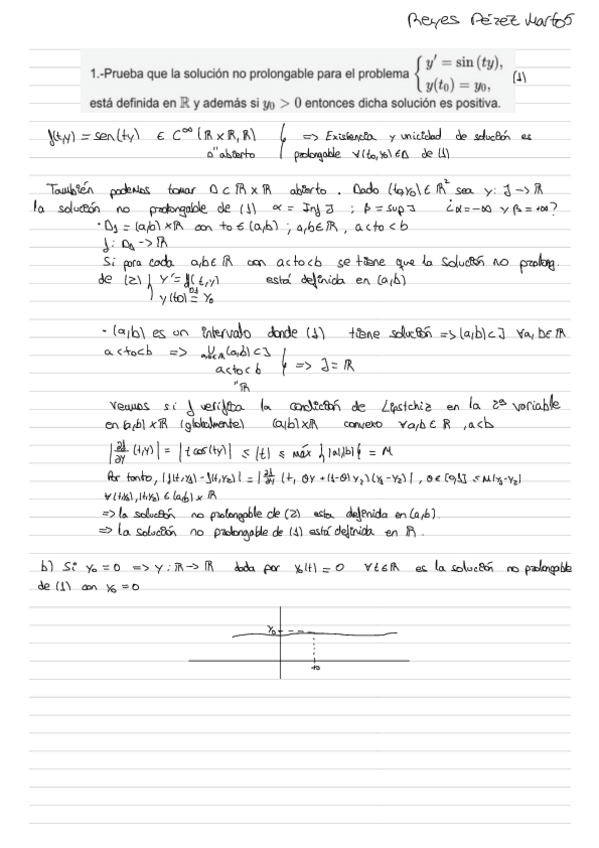 Reyes Pérez Martos
1.-Prueba que la solución no prolongable para el problema { y' = sin (ty), y(t₀) = y₀, (1)
está definida en ℝ y además si y₀ > 0 entonces dicha solución es positiva.
f(t,y) = sen(ty) ∈ C^∞ (ℝ×ℝ, ℝ) } => Existencia y unicidad de solución es
Ω" abierto prolongable ∀(t₀,y₀)∈Ω de (1)
También podemos tomar Ω ⊂ ℝ×ℝ abierto. Dado (t₀,y₀) ∈ ℝ² sea y: J -> ℝ
la solución no prolongable de (1) α = Inf J ; β = sup J ¿α=-∞ y β=+∞?
· Ω₁ = (a,b)×ℝ con t₀ ∈ (a,b) ; a,b∈ℝ, a<t₀<b
f: Ω₁ -> ℝ
Si para cada a,b∈ℝ con a<t₀<b se tiene que la solución no prolong.
de (2) { y' = f(t,y) está definida en (a,b)
y(t₀) = y₀
· (a,b) es un intervalo donde (1) tiene solución => (a,b)⊂J ∀a,b∈ℝ
a<t₀<b => ∪ (a,b) ⊂ J } => J = ℝ
a<t₀<b
"ℝ
Veamos si f verifica la condición de Lipstchiz en la 2ª variable
en (a,b)×ℝ (globalmente) (a,b)×ℝ convexo ∀a,b∈ℝ, a<b
|∂f/∂y (t,y)| = |t cos(ty)| ≤ |t| ≤ máx {|a|,|b|} = M
Por tanto, |f(t,y₁)-f(t,y₂)| = |∂f/∂y (t, θy + (1-θ)y₂)(y₁-y₂)|, θ∈[0,1] ≤ M|y₁-y₂|
∀(t,y₁),(t,y₂) ∈ (a,b) × ℝ
=> la solución no prolongable de (2) esta definida en (a,b).
=> la solución no prolongable de (1) está definida en ℝ.
b) Si y₀ = 0 => y: ℝ -> ℝ dada por y₀(t) = 0 ∀t∈ℝ es la solución no prolongable
de (1) con y₀ = 0
y₀
t₀